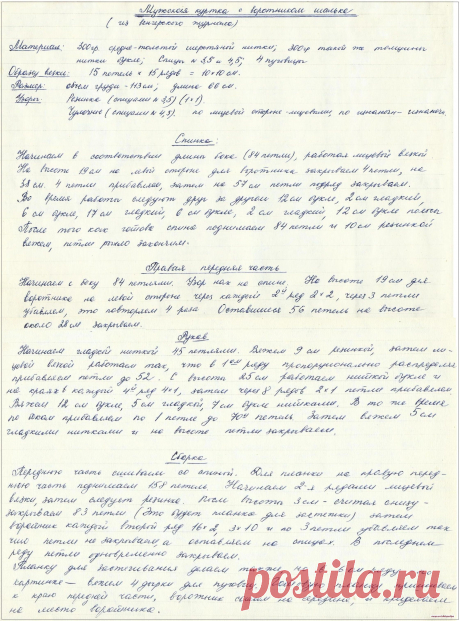 Мужская куртка с воротником шалька
( из венгерского журнала)
Материал: 300гр. средне-толстой шерстяной нитки; 300гр такой же толщины
нитки букле; Спицы № 3,5 и 4,5; 4 пуговицы
Образец вязки: 15 петель × 15 рядов = 10×10 см.
Размер: объем груди - 113см; длина 66 см.
Узоры: Резинка (спицами № 3,5) (1×1)
Чулочные (спицами № 4,5) по лицевой стороне-лицевыми, по изнаночн-изнаночн.
Спинка:
Начинаем в соответствии длины бока (84 петли), работая лицевой вязкой
На высоте 19см на левой стороне для воротника закрываем 4 петли, на
38 см. 4 петли прибавляем, затем на 57 см петли подряд закрываем.
Во время работы следуют друг за другом 12см букле, 2см гладкий,
6 см букле, 17см гладкий, 6 см букле, 2 см гладкий, 12 см букле полоса.
После того как готова спина поднимаем 84 петли и 10 см резинкой
вяжем, петли рыхло закончим.
Правая передняя часть
Начинаем с боку 84 петлями. Узор как на спине. На высоте 19см для
воротника на левой стороне через каждый 2й ряд 2×2, через 3 петли
убавляем, это повторяем 4 раза. Оставшиеся 56 петель на высоте
около 28см закрываем.
Рукав
Начинаем гладкой ниткой 45 петлями. Вяжем 9 см резинкой, затем ли-
цевой вязкой работаем так, что в 1ом ряду пропорционально распределяя
прибавляем петли до 52. С высоты 25см работаем ниткой букле и
на краях в каждый 4й ряд 4×1, затем через 8 рядов 2×1 петли прибавляем.
Вяжем 12 см букле, 5 см гладкий, 7 см букле нитками. В то же время
по бокам прибавляем по 1 петле до 70и петель. Затем вяжем 5 см
гладкими нитками и на высоте петли закрываем.
Сборка
Переднюю часть сшиваем со спинкой. Для планки на правую перед-
нюю часть поднимаем 158 петель. Начинаем 2-я рядами лицевой
вязки, затем следует резинка. После высоты 3 см - считая снизу -
закрываем 83 петли (Это будет планка для застежки) затем
в каждый второй ряд 16×2, 3×10 и по 3 петли убавляем так
что петли не закрываем а оставляем на спицах. В последнем
ряду петли одновременно закрываем.
Планку для застегивания делаем также но в ряду - по
картинке - вяжем 4 дырки для пуговиц. планки пришиваем
к краю передней части, воротник сшиваем на середине, и пришиваем
на место воротника.
postila.ru